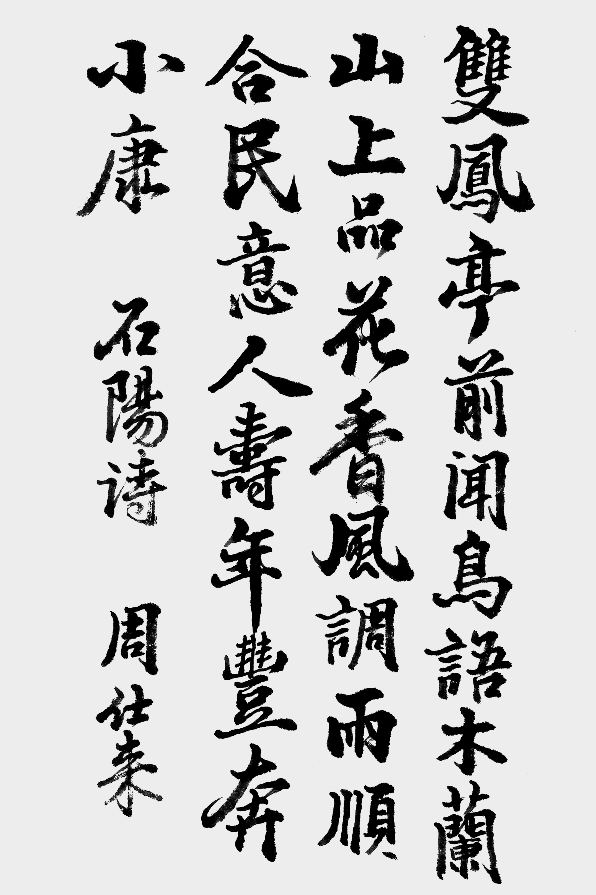 雙鳳亭前闻鳥語木蘭
山上品花香風調雨順
合民意人壽年豐奔
小康 石陽诗 周仕来